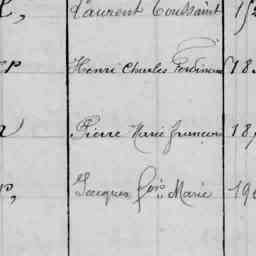 Laurent Toussaint
Henri Charles Ferdinand 18
Pierre Marie François 18
Jacques fçois Marie 19